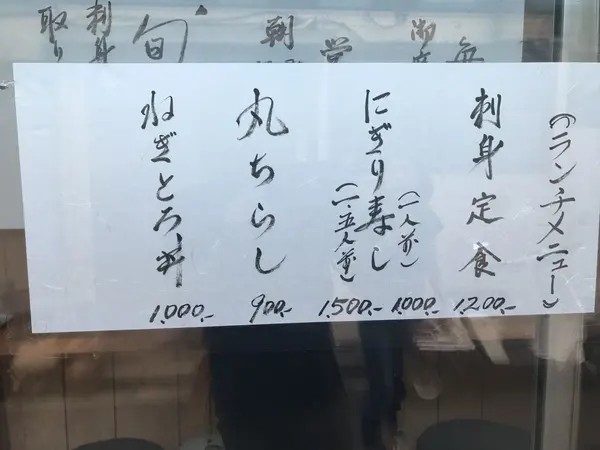 (ランチメニュー)
刺身定食
1.200.-
にぎり寿し
(一人前)
1.000.-
(一.五人前)
1.500.-
丸ちらし
900.-
ねぎとろ丼
1.000.-
毎
御
営
朝
旬
刺身
取り